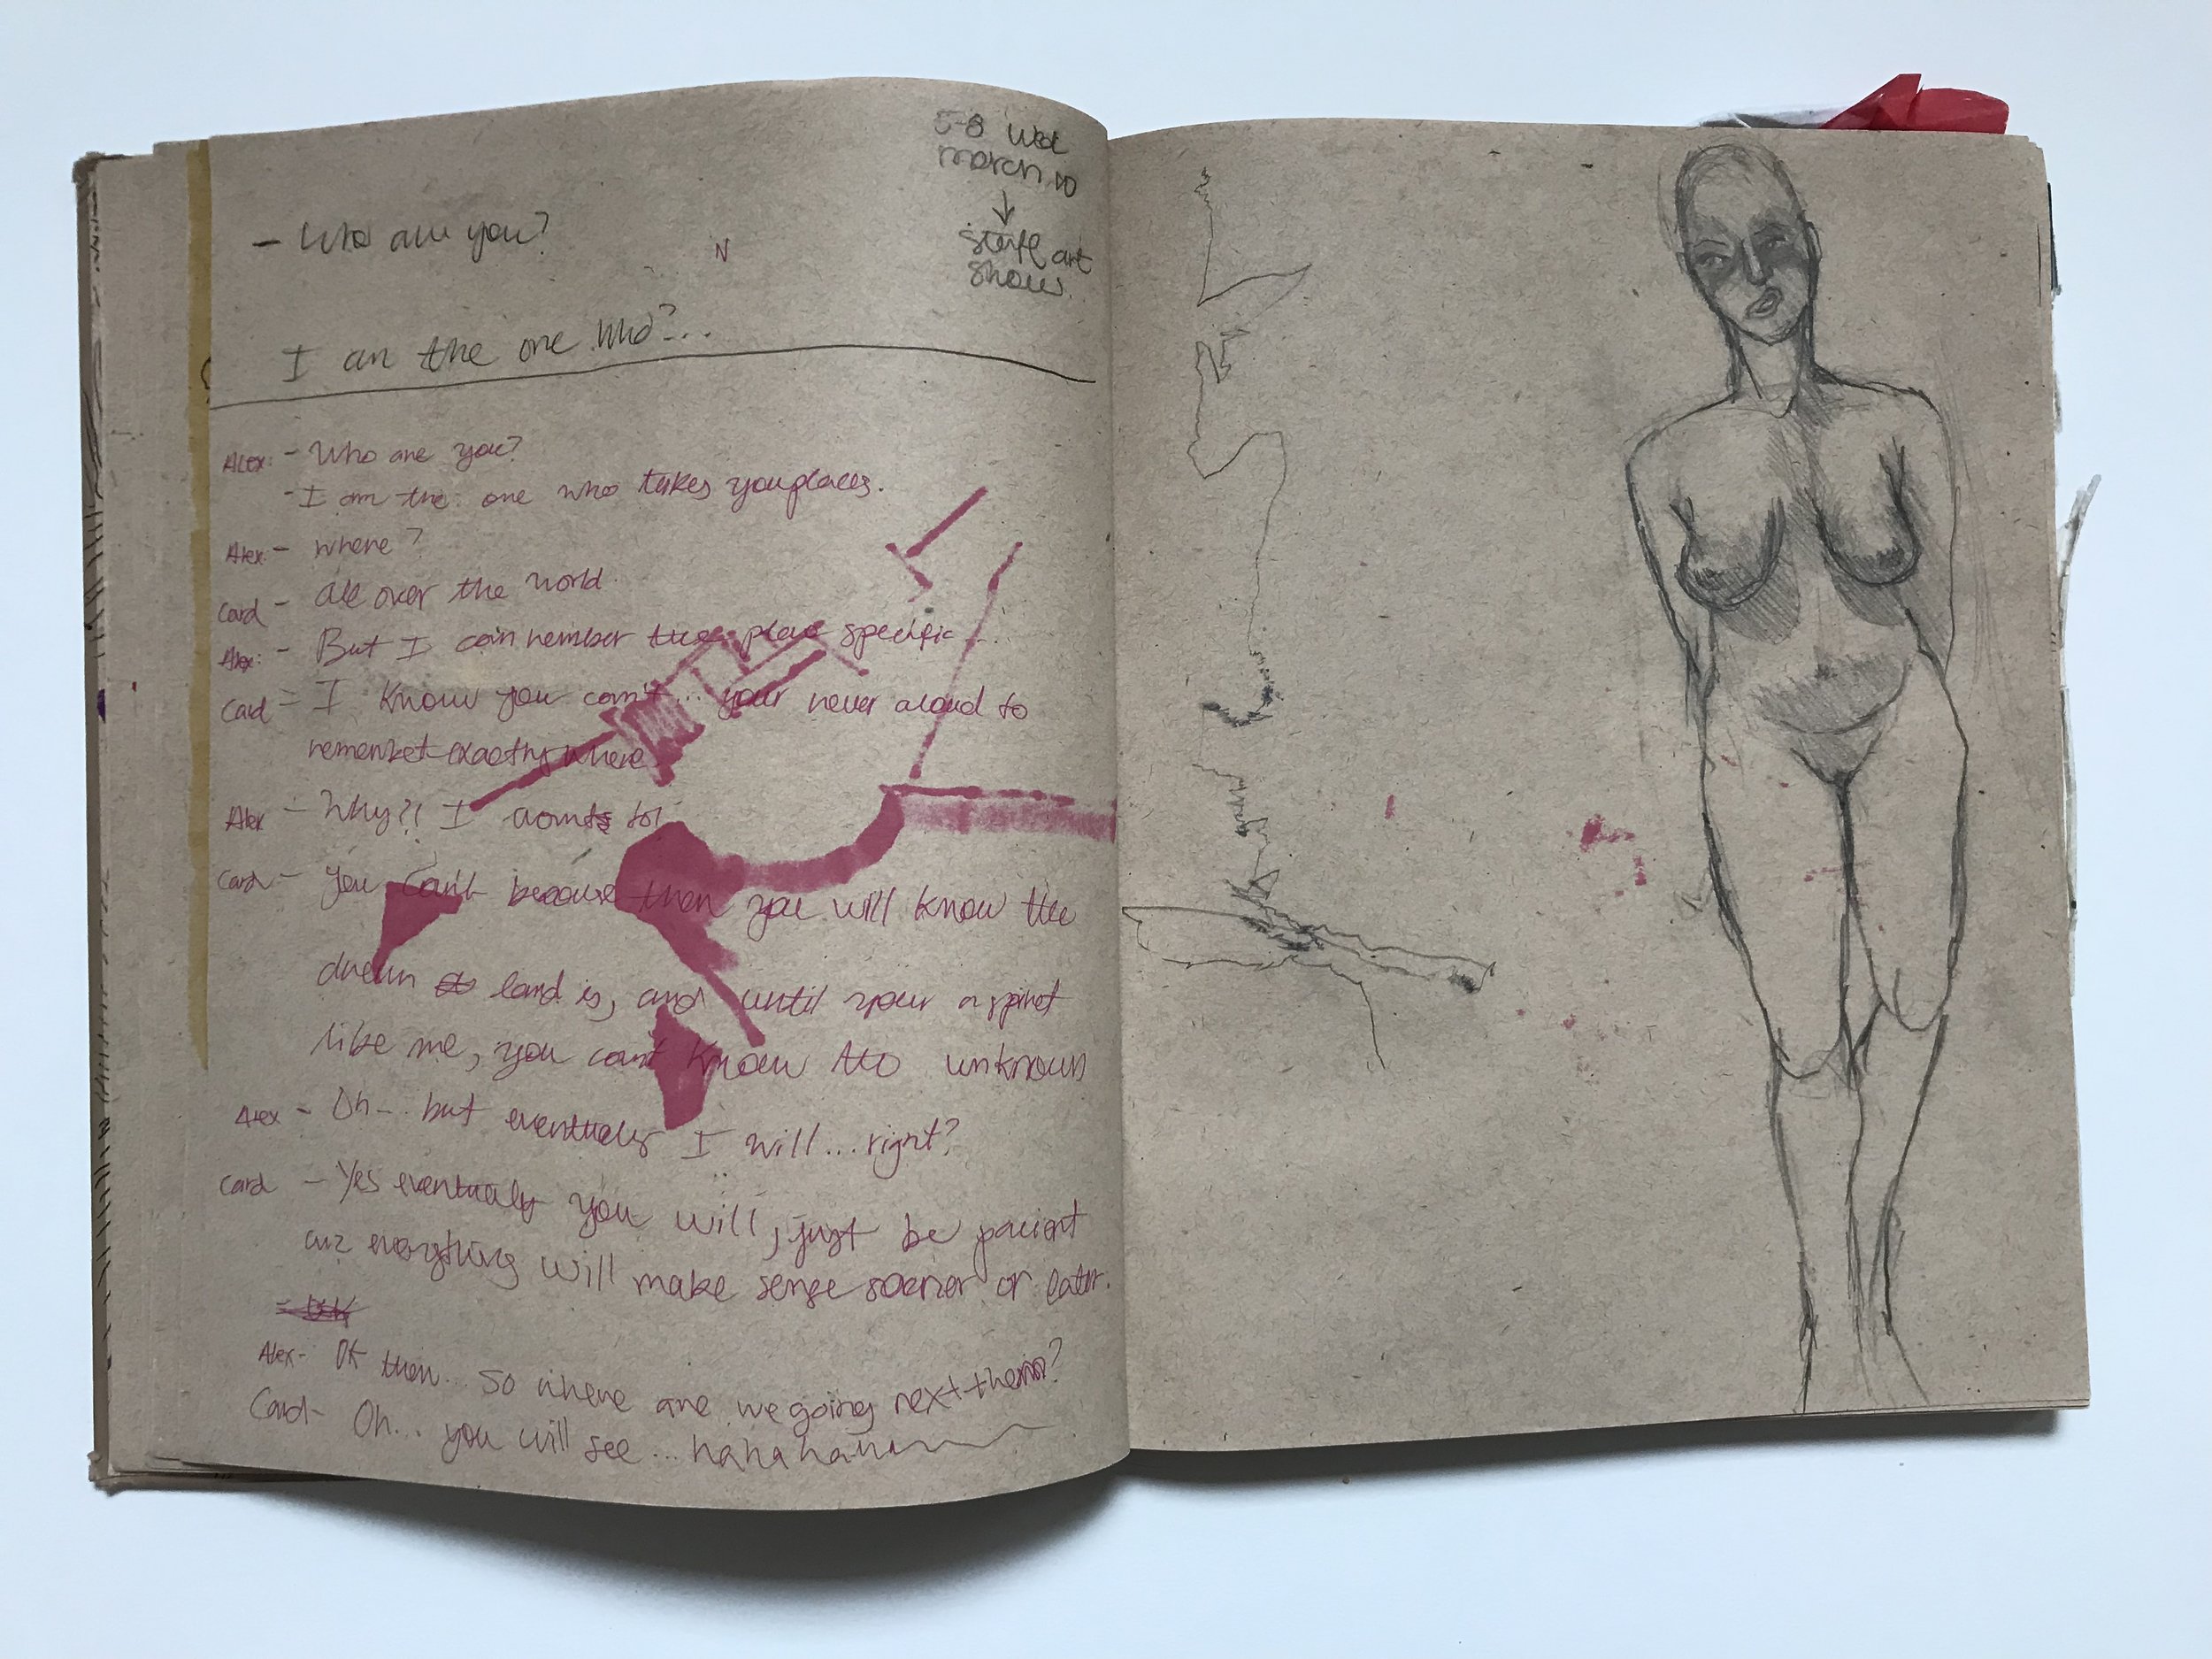 5-8 Wed
march 10
↓
staff art
show.
- Who are you?
N
I am the one who?...
Alex: - Who are you?
- I am the one who takes you places.
Alex - where?
Card - all over the world.
Alex: - But I can nember the place specific...
Card - I know you can't... your never aloud to
remember exactly where
Alex - Why?! I wants to!
Card - you can't because then you will know the
dream land is, and until your a spirit
like me, you can't know the unknown
Alex - Oh... but eventualy I will... right?
Card - Yes eventualy you will, just be pacient
and everything will make sense sooner or later.
- OK
Alex - OK then... so where are we going next then?
Card - Oh... you will see... hahahaha